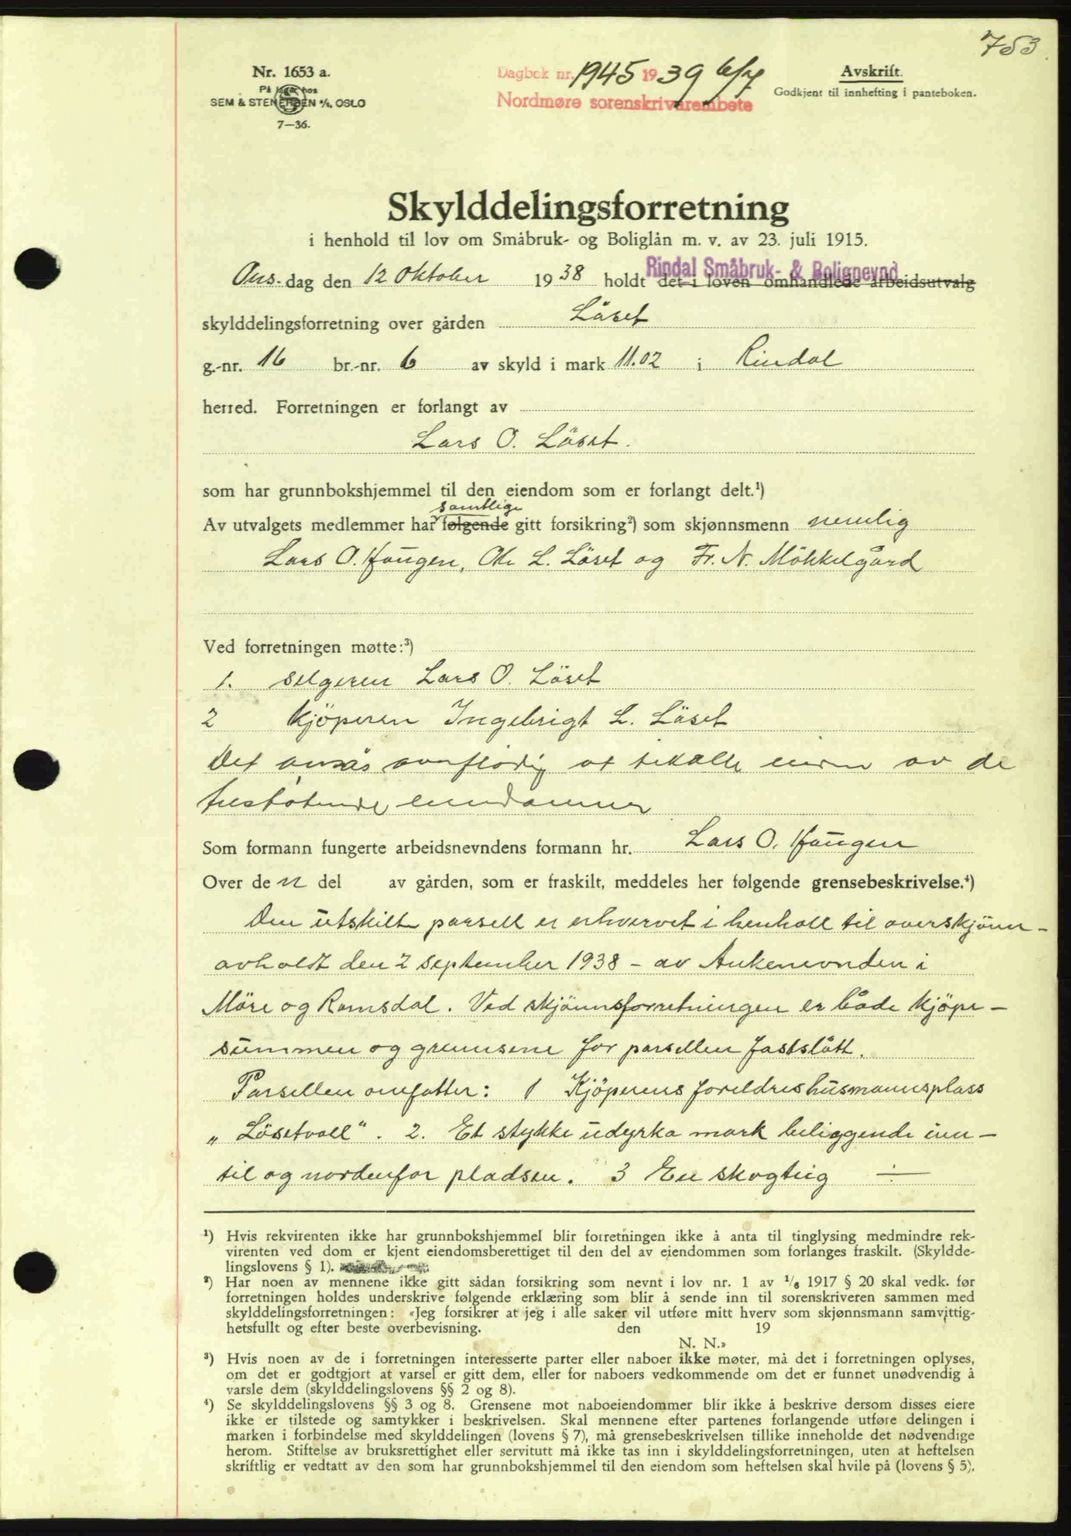 753
Nr. 1653 a.
På lager hos
SEM & STENERSEN A/S, OSLO
7—36.
Dagbok nr. 1945 1939 6/7
Nordmøre sorenskrivarembete
Avskrift.
Godkjent til innhefting i panteboken.
Skylddelingsforretning
i henhold til lov om Småbruk- og Boliglån m. v. av 23. juli 1915.
Rindal Småbruk- & Bolignevnd
Ons. dag den 12 Oktober 1938 holdt det i loven omhandlede arbeidsutvalg
skylddelingsforretning over gården Løset
g.-nr. 16 br.-nr. 6 av skyld i mark 11.02 i Rindal
herred. Forretningen er forlangt av
Lars O. Löset.
som har grunnbokshjemmel til den eiendom som er forlangt delt.¹)
samtlige
Av utvalgets medlemmer har følgende gitt forsikring²) som skjønnsmenn nemlig
Lars O. Haugen, Ole L. Löset og Fr. N. Mökkelgård
Ved forretningen møtte:³)
1. selgeren Lars O. Löset
2 Kjöperen Ingebrigt L. Löset
Det ansås overflødig at tilkalle eieren av de
tilstøtende eiendommer
Som formann fungerte arbeidsnevndens formann hr. Lars O. Haugen
Over den del av gården, som er fraskilt, meddeles her følgende grensebeskrivelse.⁴)
Den utskilte parsell er erhvervet i henholl til overskjönn-
avholdt den 2 september 1938 - av Ankenevnden i
Möre og Romsdal. Ved skjönnsforretningen er både kjöpe-
summen og grensene for parsellen fastslått.
Parsellen omfatter: 1 Kjöperens foreldres husmannsplass
„Lösetvoll". 2. Et stykke udyrka mark beliggende inn-
til og nordenfor pladsen. 3 En skogteig ÷
¹) Hvis rekvirenten ikke har grunnbokshjemmel blir forretningen ikke å anta til tinglysing medmindre rek-
virenten ved dom er kjent eiendomsberettiget til den del av eiendommen som forlanges fraskilt. (Skyldde-
lingslovens § 1).
²) Har noen av mennene ikke gitt sådan forsikring som nevnt i lov nr. 1 av ¹/₆ 1917 § 20 skal vedk. før
forretningen holdes underskrive følgende erklæring som blir å sende inn til sorenskriveren sammen med
skylddelingsforretningen: «Jeg forsikrer at jeg i alle saker vil utføre mitt hverv som skjønnsmann samvittig-
hetsfullt og efter beste overbevisning. den 19
N. N.»
³) Hvis noen av de i forretningen interesserte parter eller naboer ikke møter, må det i forretningen oplyses,
om det er godtgjort at varsel er gitt dem, eller for naboers vedkommende om det er funnet unødvendig å
varsle dem (skylddelingslovens §§ 2 og 8).
⁴) Se skylddelingslovens §§ 3 og 8. Grensene mot naboeiendommer blir ikke å beskrive dersom disses eiere
ikke er tilstede og samtykker i beskrivelsen. Skal mennene efter partenes forlangende utføre delingen i
marken i forbindelse med skylddelingen (lovens § 7), må grensebeskrivelsen tillike inneholde det nødvendige
herom. Stiftelse av bruksrettighet eller servitutt må ikke tas inn i skylddelingsforretningen, uten at heftelsen
skriftlig er vedtatt av den som har grunnbokshjemmel til den eiendom som heftelsen skal hvile på (lovens § 5).